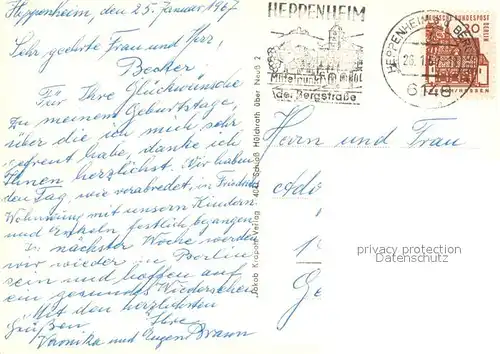 Heppenheim, den 25. Januar 1967
Sehr geehrte Frau und Herr,
Becker.
Für Ihre Glückwünsche
zu meinem Geburtstage,
über die ich mich sehr
gefreut habe, danke ich
Ihnen herzlichst. Wir haben
den Tag, wie verabredet, in
Wohnung mit unsern Kindern
und Enkeln festlich begangen.
In nächster Woche werden
wir wieder in Berlin
sein und hoffen auf
ein gesundes Wiedersehen.
Mit den herzlichsten
Grüßen Ihre
Veronika und Eugen Braun
HEPPENHEIM
Mittelpunkt
der Bergstraße
HEPPENHEIM
26.1.67
6148
DEUTSCHE BUNDESPOST
BERLIN
Herrn und Frau
Ado
1
Ge
Jakob Krapohl-Verlag 4041 Schloß Hülchrath über Neuß 2
privacy protection
Datenschutz